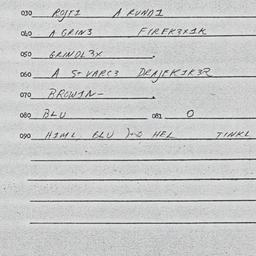 030 ROJFI A RUNDI
060 A GRIN3 FIREK3X1K
050 GRINDL3X
060 A ST VARC3 DRAJEK1K3R
070 BROWIN-
080 BLU 081 0
090 HIML BLU HEL TINKL